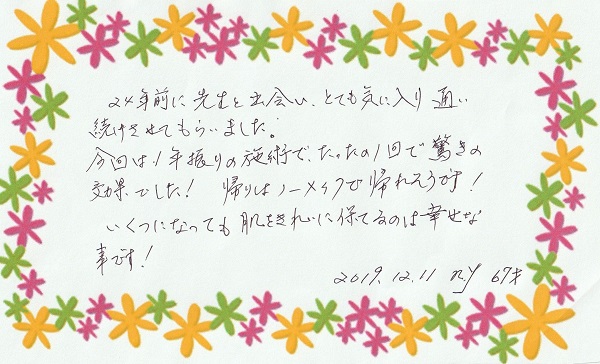 24年前に先生と出会い、とても気に入り通い
続けさせてもらいました。
今回は1年振りの施術で、たったの1回で驚きの
効果でした! 帰りはノーメイクで帰れそうです!
いくつになっても肌をきれいに保てるのは幸せな
事です!
2019.12.11 N.Y 67才